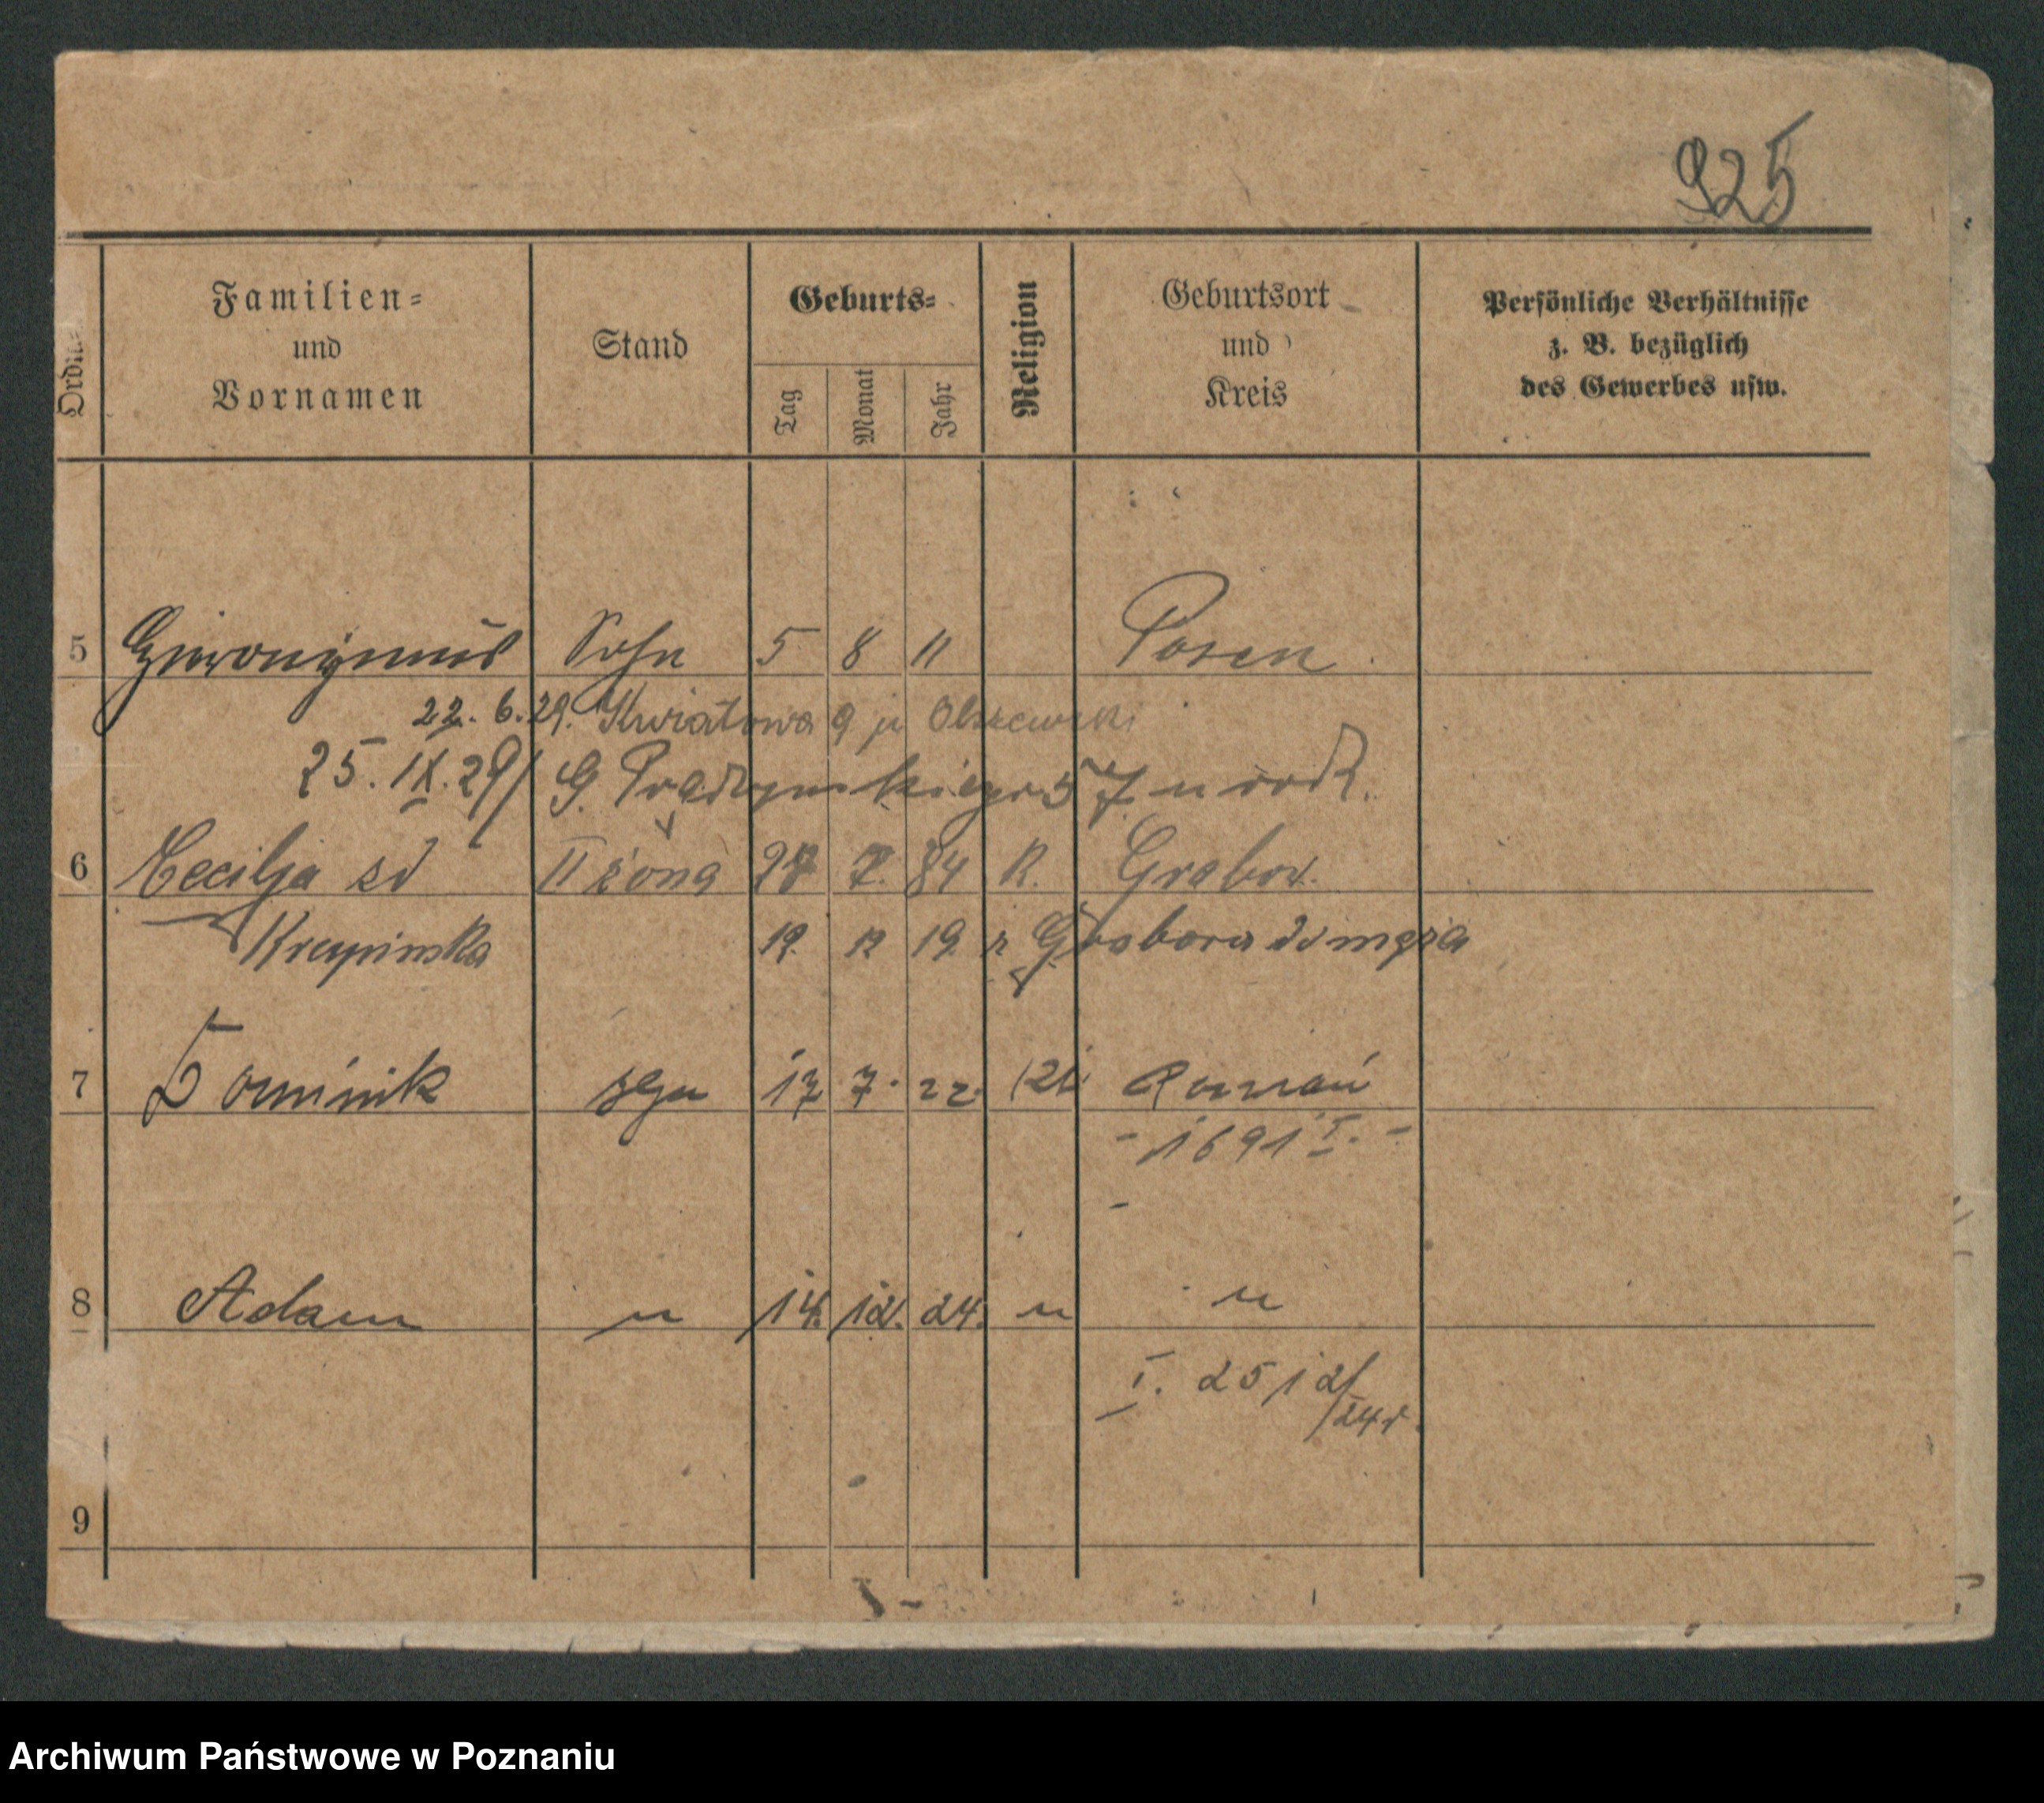 925
Ordn=
Familien=
und
Vornamen
Stand
Geburts=
Tag
Monat
Jahr
Religion
Geburtsort
und
Kreis
Persönliche Verhältnisse
z. B. bezüglich
des Gewerbes usw.
5 Hieronymus Sohn 5 8 11 Posen
22. 6. 29. Kwiatowa 9 p Olszewski
25. IX. 29 G. Prądzyńskiego 57 u rodz.
6 Cecilja zd II żona 7. 84 R. Grabow.
Krepinska 12. 12 19 z Grabowa do męża
7 Dominik syn 17 7. 22 Poznań
- 1691 I. -
8 Adam " 14. 12. 24. " "
I. 2512/24 r.
9
Archiwum Państwowe w Poznaniu